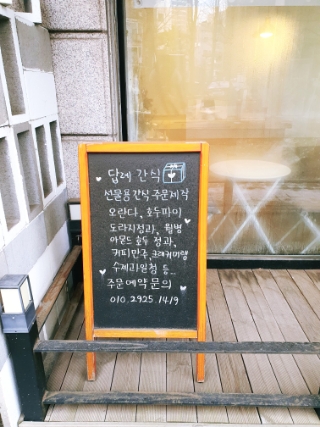 답례 간식
선물용간식 주문제작
오란다, 호두파이
도라지정과, 월병
아몬드 호두 정과,
커피만주, 크래커미엘
수제과일청 등...
주문예약문의
010.2925.1419